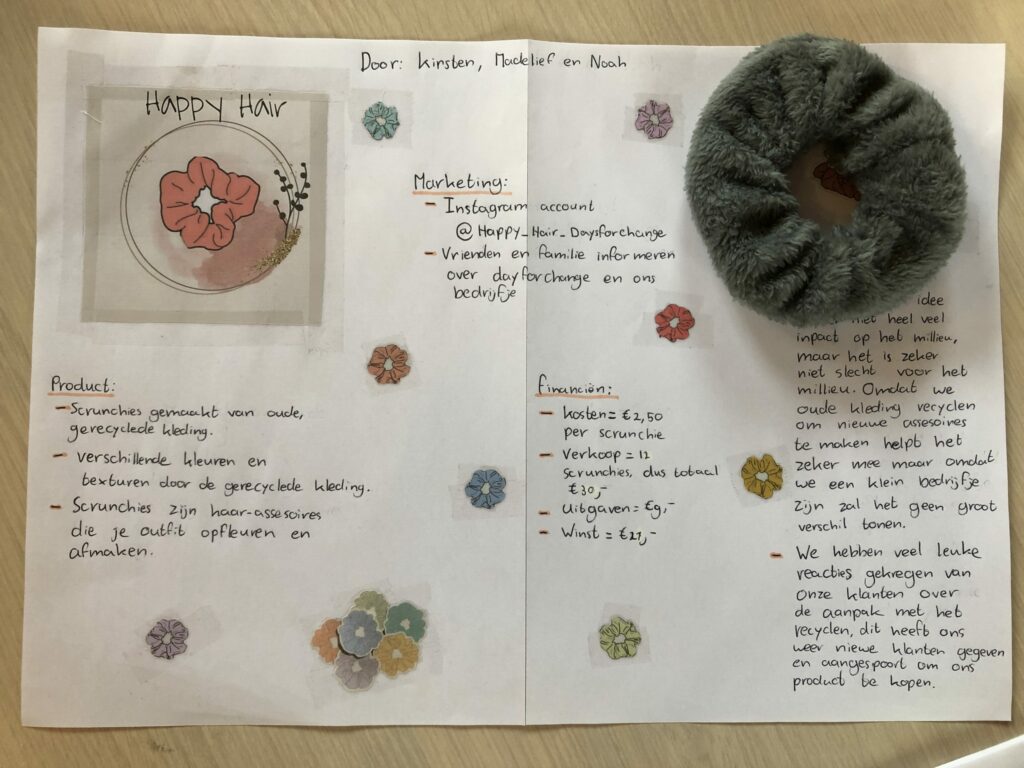 Door: Kirsten, Madelief en Noah
Happy Hair
Marketing:
- Instagram account
@Happy_Hair_Daysforchange
- Vrienden en familie informeren
over dayforchange en ons
bedrijfje
Product:
- Scrunchies gemaakt van oude,
gerecyclede kleding.
- verschillende kleuren en
texturen door de gerecyclede kleding.
- Scrunchies zijn haar-assesoires
die je outfit opfleuren en
afmaken.
Financiën:
- kosten = €2,50
per scrunchie
- Verkoop = 12
scrunchies, dus totaal
€30,-
- Uitgaven = €9,-
- Winst = €21,-
idee
niet heel veel
inpact op het millieu,
maar het is zeker
niet slecht voor het
millieu. Omdat we
oude kleding recyclen
om nieuwe assesoires
te maken helpt het
zeker mee maar omdat
we een klein bedrijfje
zijn zal het geen groot
verschil tonen.
- We hebben veel leuke
reacties gekregen van
onze klanten over
de aanpak met het
recyclen, dit heeft ons
weer niewe klanten gegeven
en aangespoort om ons
product te kopen.